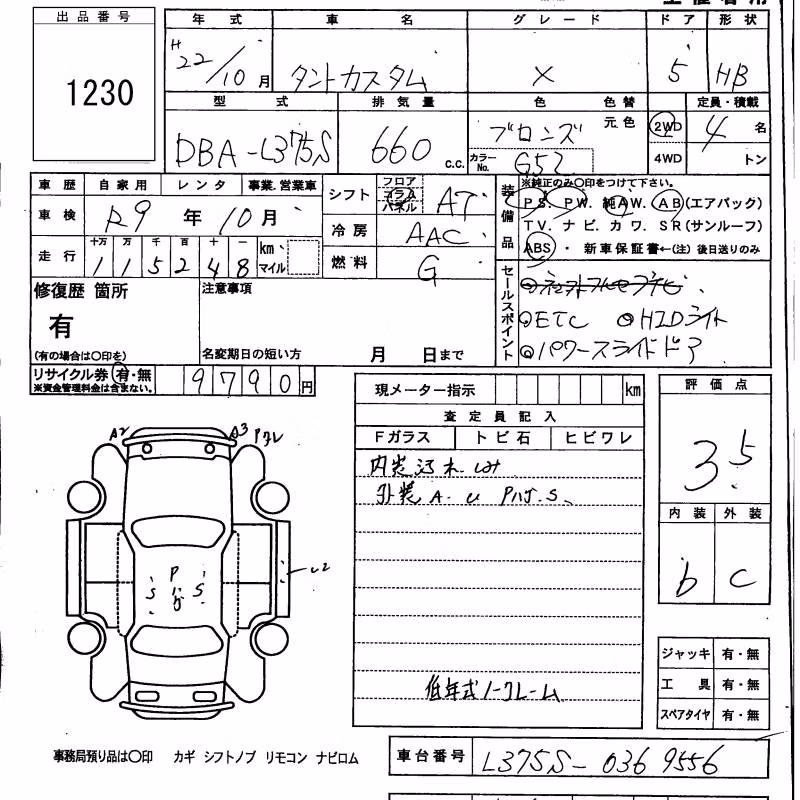 出品番号
1230
年式 車名 グレード ドア 形状
H22/10月 タントカスタム X 5 HB
型式 排気量 色 色替 定員・積載
DBA-L375S 660 c.c. ブロンズ 元色 2WD 4名
カラーNo. G52 4WD トン
車歴 自家用 レンタ 事業.営業車
車検 R9年10月
走行 十万 万 千 百 十 一 km、マイル
1 1 5 2 4 8
シフト フロア コラム パネル AT
冷房 AAC
燃料 G
装備品 ※純正のみ〇印をつけて下さい。
PS. PW. 純AW. AB(エアバック)
TV. ナビ. カワ. SR(サンルーフ)
ABS・新車保証書←(注)後日送りのみ
修復歴 箇所
有
(有の場合は〇印を)
注意事項
名変期日の短い方 月 日まで
セールスポイント
◎ETC ◎HIDライト
◎パワースライドドア
リサイクル券 有・無 9790円
※資金管理料金は含まない。
現メーター指示 km
査定員記入
Fガラス トビ石 ヒビワレ
内装汚れ
外装 A. U Pハゲ.S、
低年式ノークレーム
評価点
3.5
内装 外装
b c
A2 A3 Pワレ
U2
P
S S
ジャッキ 有・無
工具 有・無
スペアタイヤ 有・無
事務局預り品は〇印 カギ シフトノブ リモコン ナビロム
車台番号 L375S-0369556